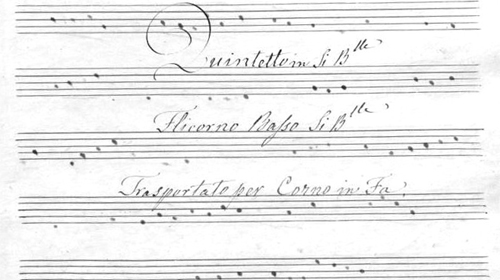 Quintetto in Si B.lle
Flicorno Basso Si B.lle
Trasportato per Corno in Fa